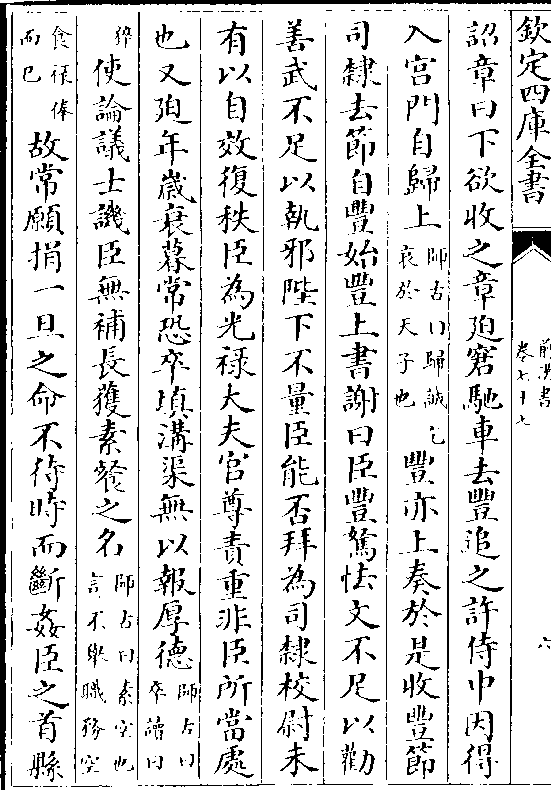 欽定四庫全書
前漢書
卷七十七
六
詔章曰下欲收之章迫窘馳車去豐追之許侍中因得
入宮門自歸上
師古曰歸誠乞
哀於天子也
豐亦上奏於是收豐節
司隸去節自豐始豐上書謝曰臣豐駑怯文不足以勸
善武不足以執邪陛下不量臣能否拜為司隸校尉未
有以自效復秩臣為光祿大夫官尊責重非臣所當處
也又迫年歲衰暮常恐卒填溝渠無以報厚德
師古曰
卒讀曰
猝
使論議士譏臣無補長獲素餐之名
師古曰素空也
言不舉職務空
食禄俸
而已
故常願捐一旦之命不待時而斷姦臣之首縣